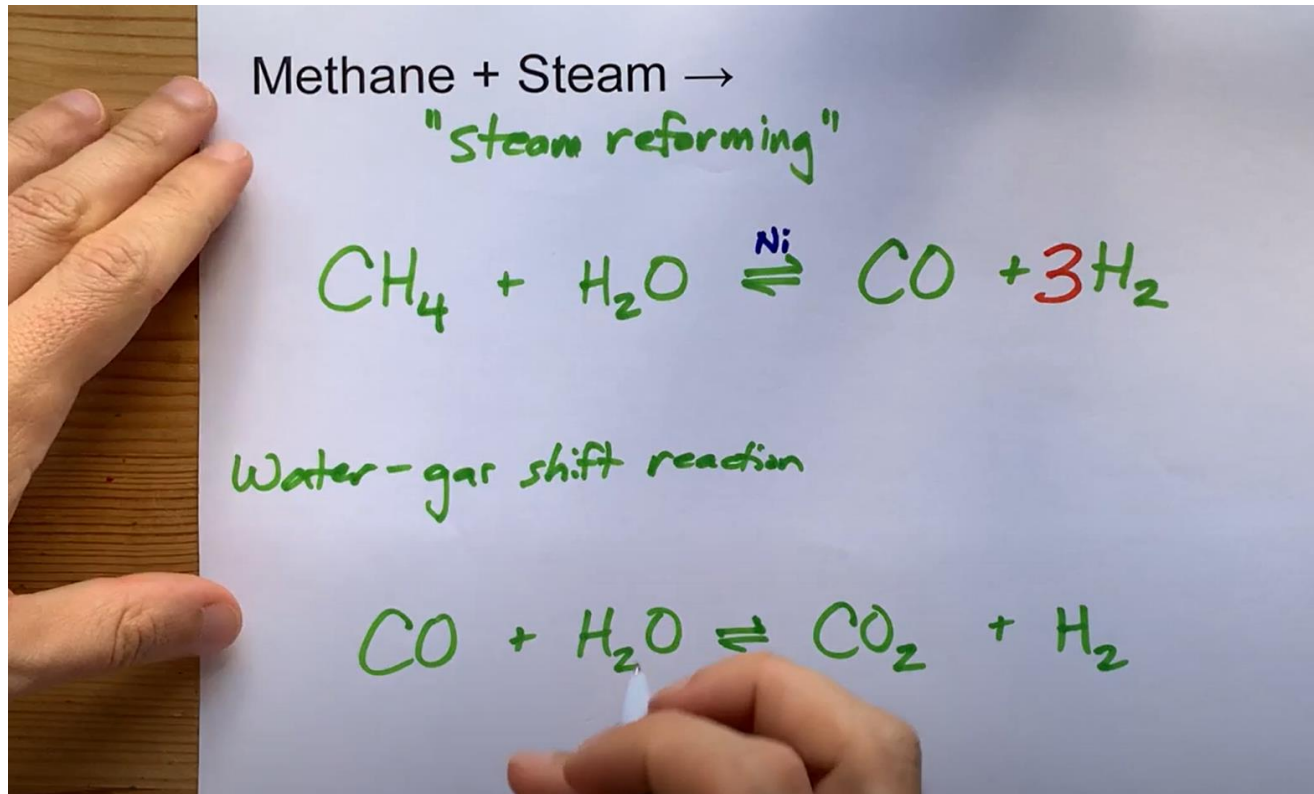 Methane + Steam →
"steam reforming"
Ni
CH₄ + H₂O ⇌ CO + 3H₂
Water-gas shift reaction
CO + H₂O ⇌ CO₂ + H₂